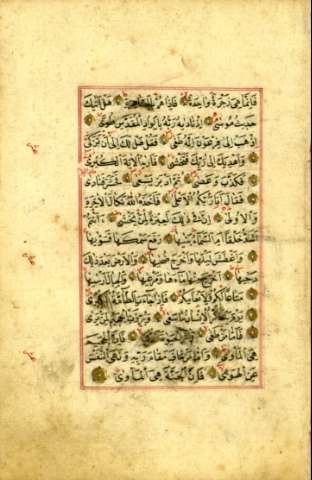 فَاِنَّمَا هِيَ زَجْرَةٌ وَاحِدَةٌ فَاِذَا هُمْ بِالسَّاهِرَةِ هَلْ اَتٰيكَ
حَدِيثُ مُوسٰى اِذْ نَادٰيهُ رَبُّهُ بِالْوَادِ الْمُقَدَّسِ طُوًى
اِذْهَبْ اِلٰى فِرْعَوْنَ اِنَّهُ طَغٰى فَقُلْ هَلْ لَكَ اِلٰى اَنْ تَزَكّٰى
وَاَهْدِيَكَ اِلٰى رَبِّكَ فَتَخْشٰى فَاَرٰيهُ الْاٰيَةَ الْكُبْرٰى
فَكَذَّبَ وَعَصٰى ثُمَّ اَدْبَرَ يَسْعٰى فَحَشَرَ فَنَادٰى
فَقَالَ اَنَا رَبُّكُمُ الْاَعْلٰى فَاَخَذَهُ اللّٰهُ نَكَالَ الْاٰخِرَةِ
وَالْاُولٰى اِنَّ فِي ذٰلِكَ لَعِبْرَةً لِمَنْ يَخْشٰى ءَاَنْتُمْ
اَشَدُّ خَلْقًا اَمِ السَّمَاءُ بَنٰيهَا رَفَعَ سَمْكَهَا فَسَوّٰيهَا
وَاَغْطَشَ لَيْلَهَا وَاَخْرَجَ ضُحٰيهَا وَالْاَرْضَ بَعْدَ ذٰلِكَ
دَحٰيهَا اَخْرَجَ مِنْهَا مَاءَهَا وَمَرْعٰيهَا وَالْجِبَالَ اَرْسٰيهَا
مَتَاعًا لَكُمْ وَلِاَنْعَامِكُمْ فَاِذَا جَاءَتِ الطَّامَّةُ الْكُبْرٰى
يَوْمَ يَتَذَكَّرُ الْاِنْسَانُ مَا سَعٰى وَبُرِّزَتِ الْجَحِيمُ لِمَنْ يَرٰى
فَاَمَّا مَنْ طَغٰى فَاِنَّ الْجَحِيمَ
هِيَ الْمَاْوٰى وَاَمَّا مَنْ خَافَ مَقَامَ رَبِّهِ وَنَهَى النَّفْسَ
عَنِ الْهَوٰى فَاِنَّ الْجَنَّةَ هِيَ الْمَاْوٰى